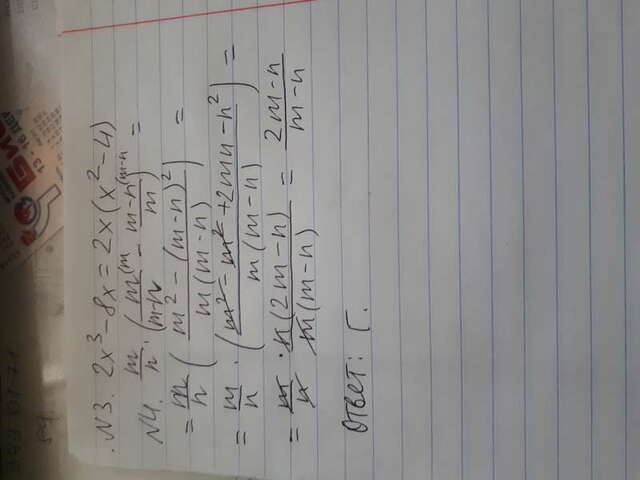 №3. 2x³-8x=2x(x²-4)
№4. m/n · (m^(m/(m-n) - m-n^(m-n/m) =
= m/n (m²-(m-n)²/m(m-n)) =
= m/n · (m²-m²+2mn-n²/m(m-n)) =
= m/n · n(2m-n)/m(m-n) = 2m-n/m-n
Ответ: Г.
13-16 ДЕ